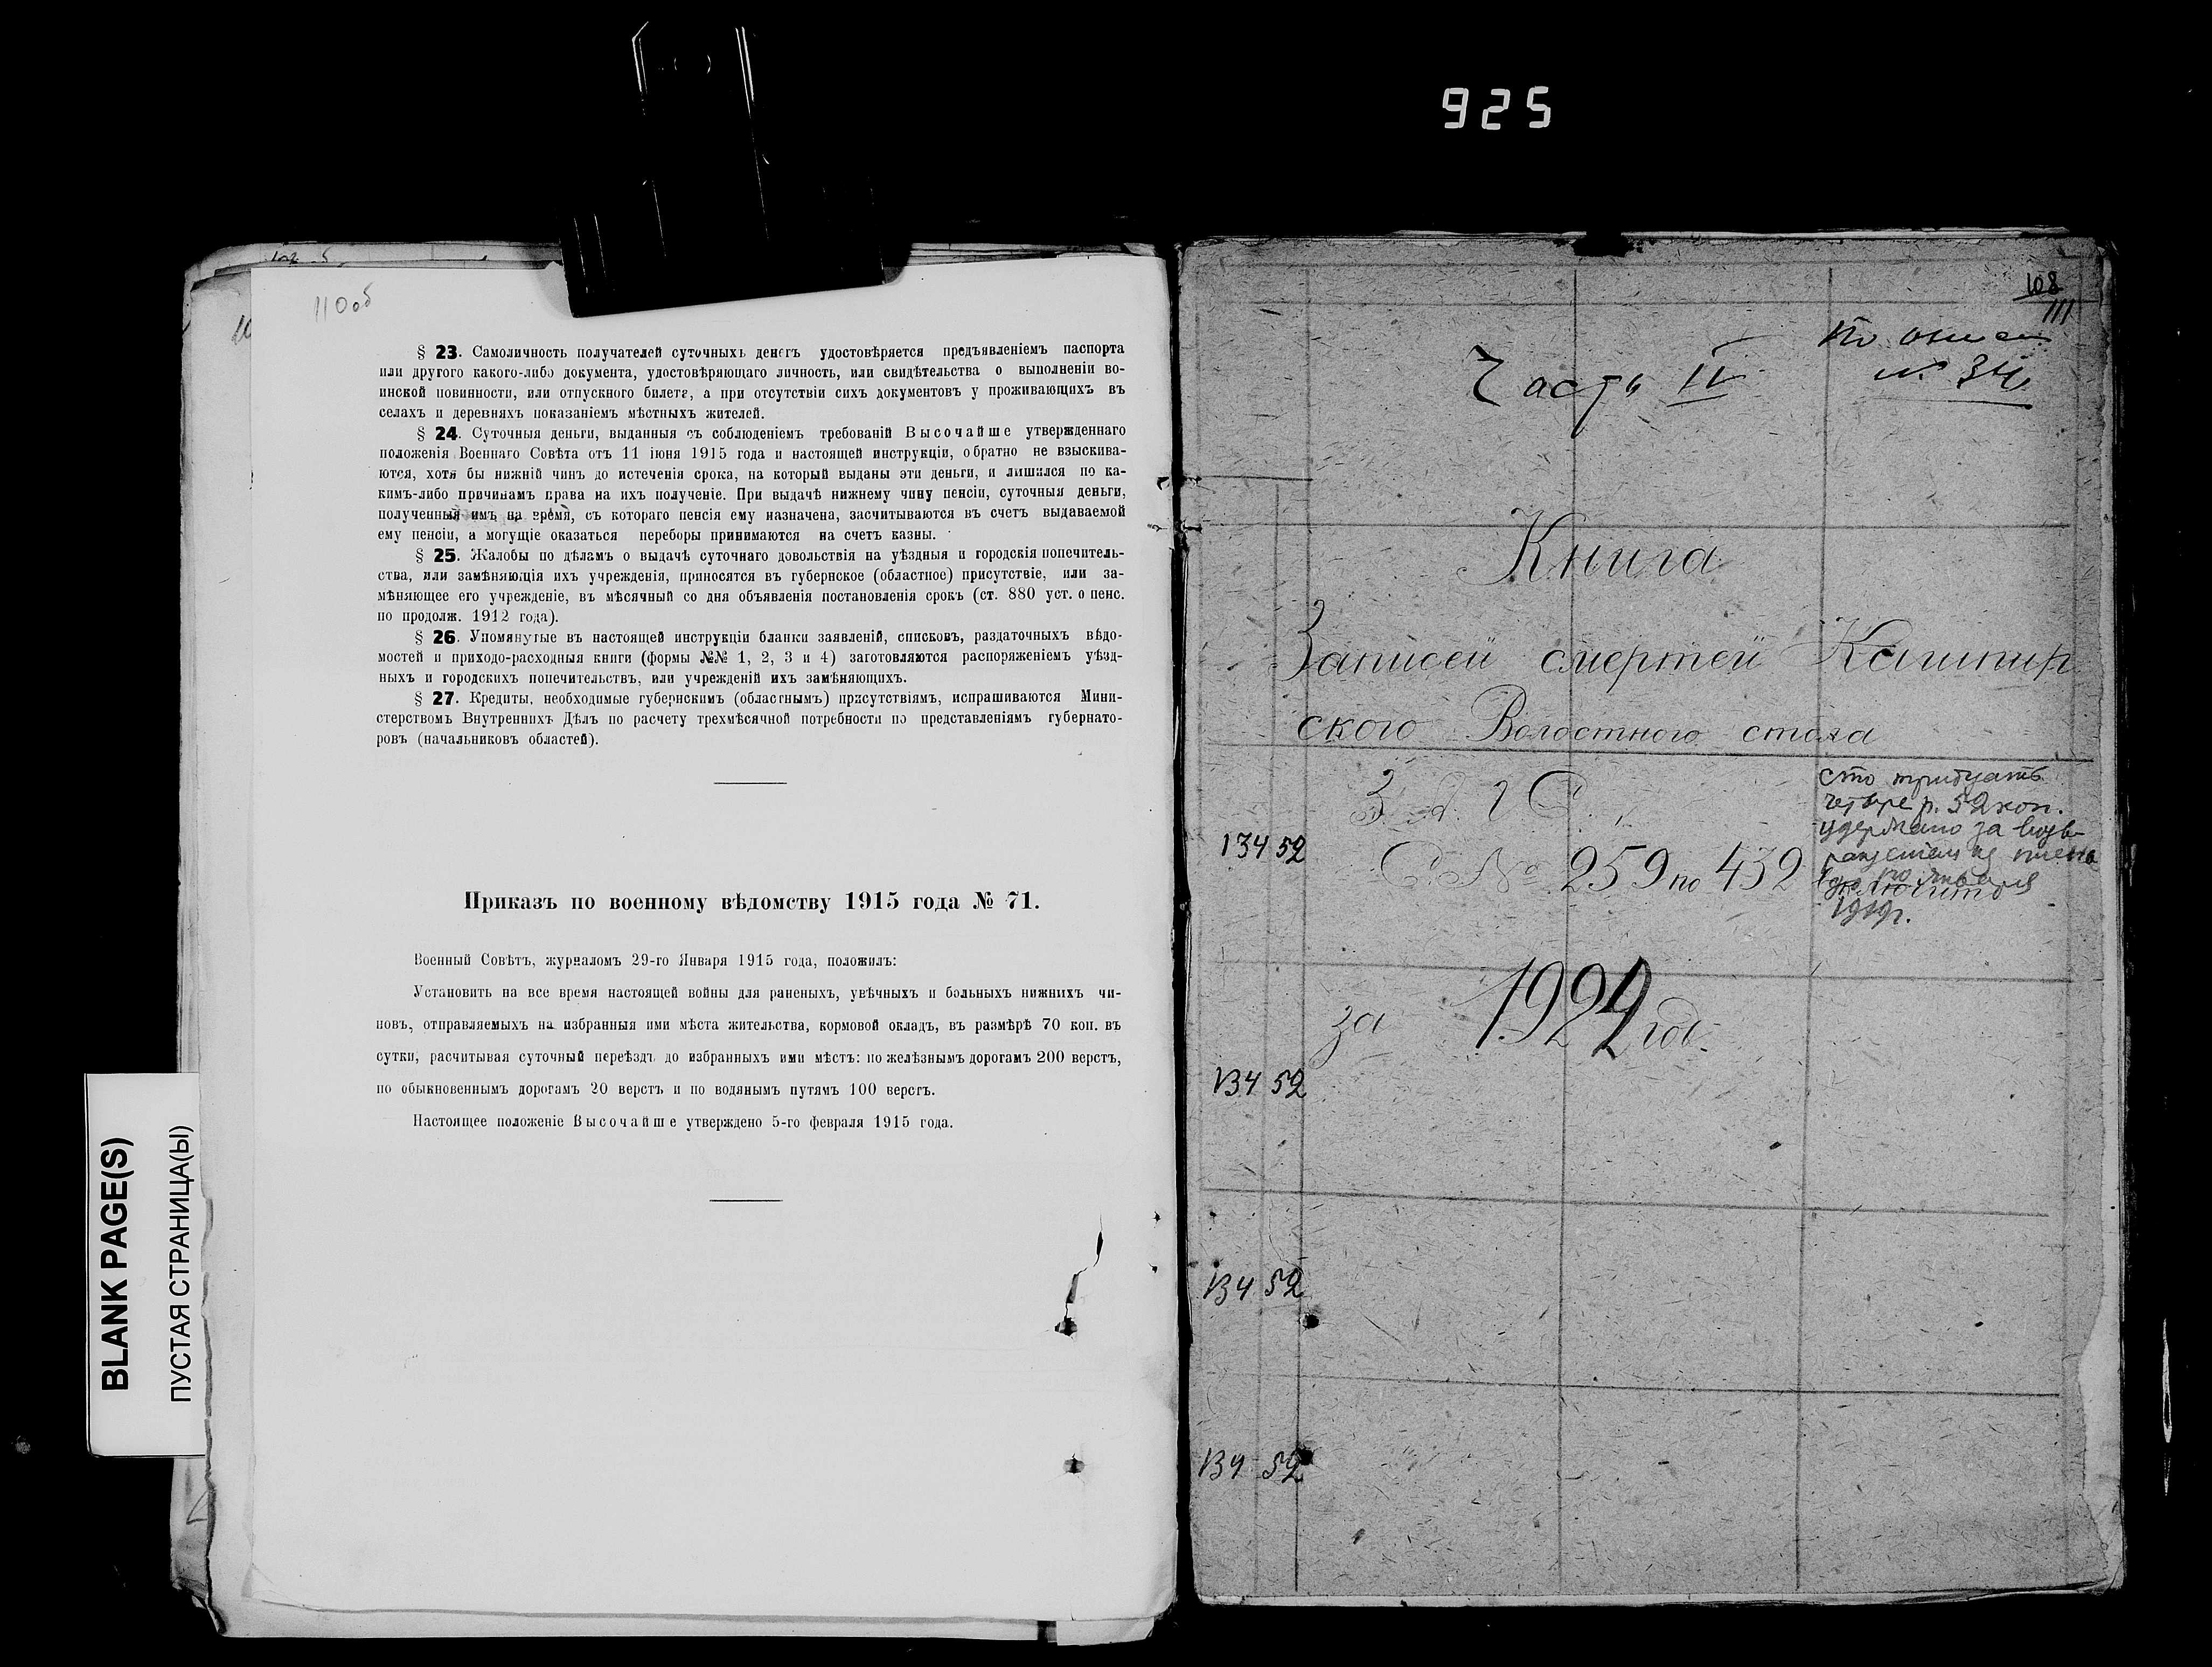 925
110об
§ 23. Самоличность получателей суточныхъ денегъ удостовѣряется предъявленіемъ паспорта
или другого какого-либо документа, удостовѣряющаго личность, или свидѣтельства о выполненіи во-
инской повинности, или отпускного билета, а при отсутствіи сихъ документовъ у проживающихъ въ
селахъ и деревняхъ показаніемъ мѣстныхъ жителей.
§ 24. Суточныя деньги, выданныя съ соблюденіемъ требованій Высочайше утвержденнаго
положенія Военнаго Совѣта отъ 11 іюня 1915 года и настоящей инструкціи, обратно не взыскива-
ются, хотя бы нижній чинъ до истеченія срока, на который выданы эти деньги, и лишился по ка-
кимъ-либо причинамъ права на ихъ полученіе. При выдачѣ нижнему чину пенсіи, суточныя деньги,
полученныя имъ на время, съ котораго пенсія ему назначена, засчитываются въ счетъ выдаваемой
ему пенсіи, а могущіе оказаться переборы принимаются на счетъ казны.
§ 25. Жалобы по дѣламъ о выдачѣ суточнаго довольствія на уѣздныя и городскія попечитель-
ства, или замѣняющія ихъ учрежденія, приносятся въ губернское (областное) присутствіе, или за-
мѣняющее его учрежденіе, въ мѣсячный со дня объявленія постановленія срокъ (ст. 880 уст. о пенс.
по продолж. 1912 года).
§ 26. Упомянутые въ настоящей инструкціи бланки заявленій, списковъ, раздаточныхъ вѣдо-
мостей и приходо-расходныя книги (формы №№ 1, 2, 3 и 4) заготовляются распоряженіемъ уѣзд-
ныхъ и городскихъ попечительствъ, или учрежденій ихъ замѣняющихъ.
§ 27. Кредиты, необходимые губернскимъ (областнымъ) присутствіямъ, испрашиваются Мини-
стерствомъ Внутреннихъ Дѣлъ по расчету трехмѣсячной потребности по представленіямъ губернато-
ровъ (начальниковъ областей).
Приказъ по военному вѣдомству 1915 года № 71.
Военный Совѣтъ, журналомъ 29-го Января 1915 года, положилъ:
Установить на все время настоящей войны для раненыхъ, увѣчныхъ и больныхъ нижнихъ чи-
новъ, отправляемыхъ на избранныя ими мѣста жительства, кормовой окладъ, въ размѣрѣ 70 коп. въ
сутки, расчитывая суточный переѣздъ до избранныхъ ими мѣстъ: по желѣзнымъ дорогамъ 200 верстъ,
по обыкновеннымъ дорогамъ 20 верстъ и по водянымъ путямъ 100 верстъ.
Настоящее положеніе Высочайше утверждено 5-го февраля 1915 года.
BLANK PAGE(S)
ПУСТАЯ СТРАНИЦА(Ы)
108
111
По описи
№ 34
Часть IV
Книга
Записей смертей Кашпир
ского Волостного стола
З А Г С.
С № 259 по 432
за 1924 год.
сто тридцать
четыре р. 52 коп.
удержано за
1919г.
134 52
134 52
134 52
134 52